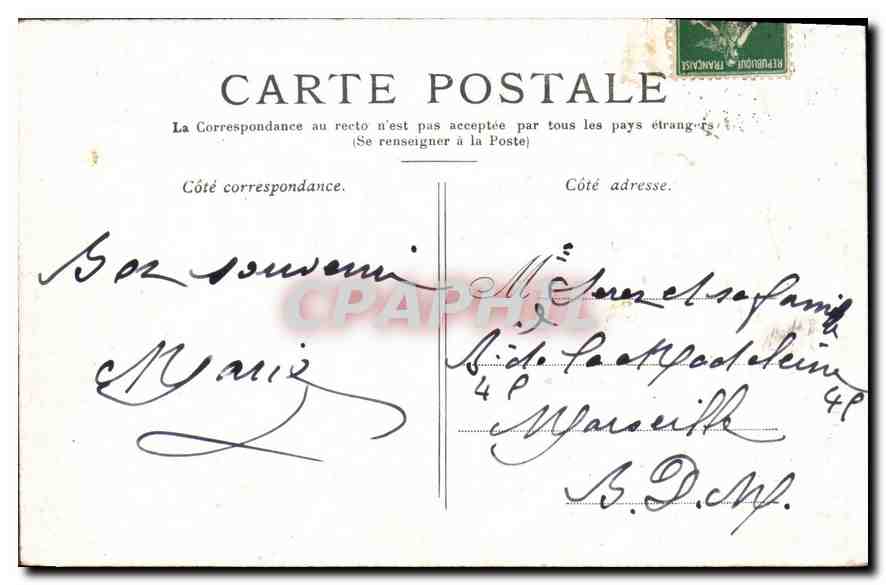 REPUBLIQUE FRANÇAISE
CARTE POSTALE
La Correspondance au recto n'est pas acceptée par tous les pays étrangers
(Se renseigner à la Poste)
Côté correspondance.
Côté adresse.
Bon souvenir
Marie
CPAPHIL
Mlle et sa famille
Bd de la Madeleine
49 49
Marseille
B. D. M.